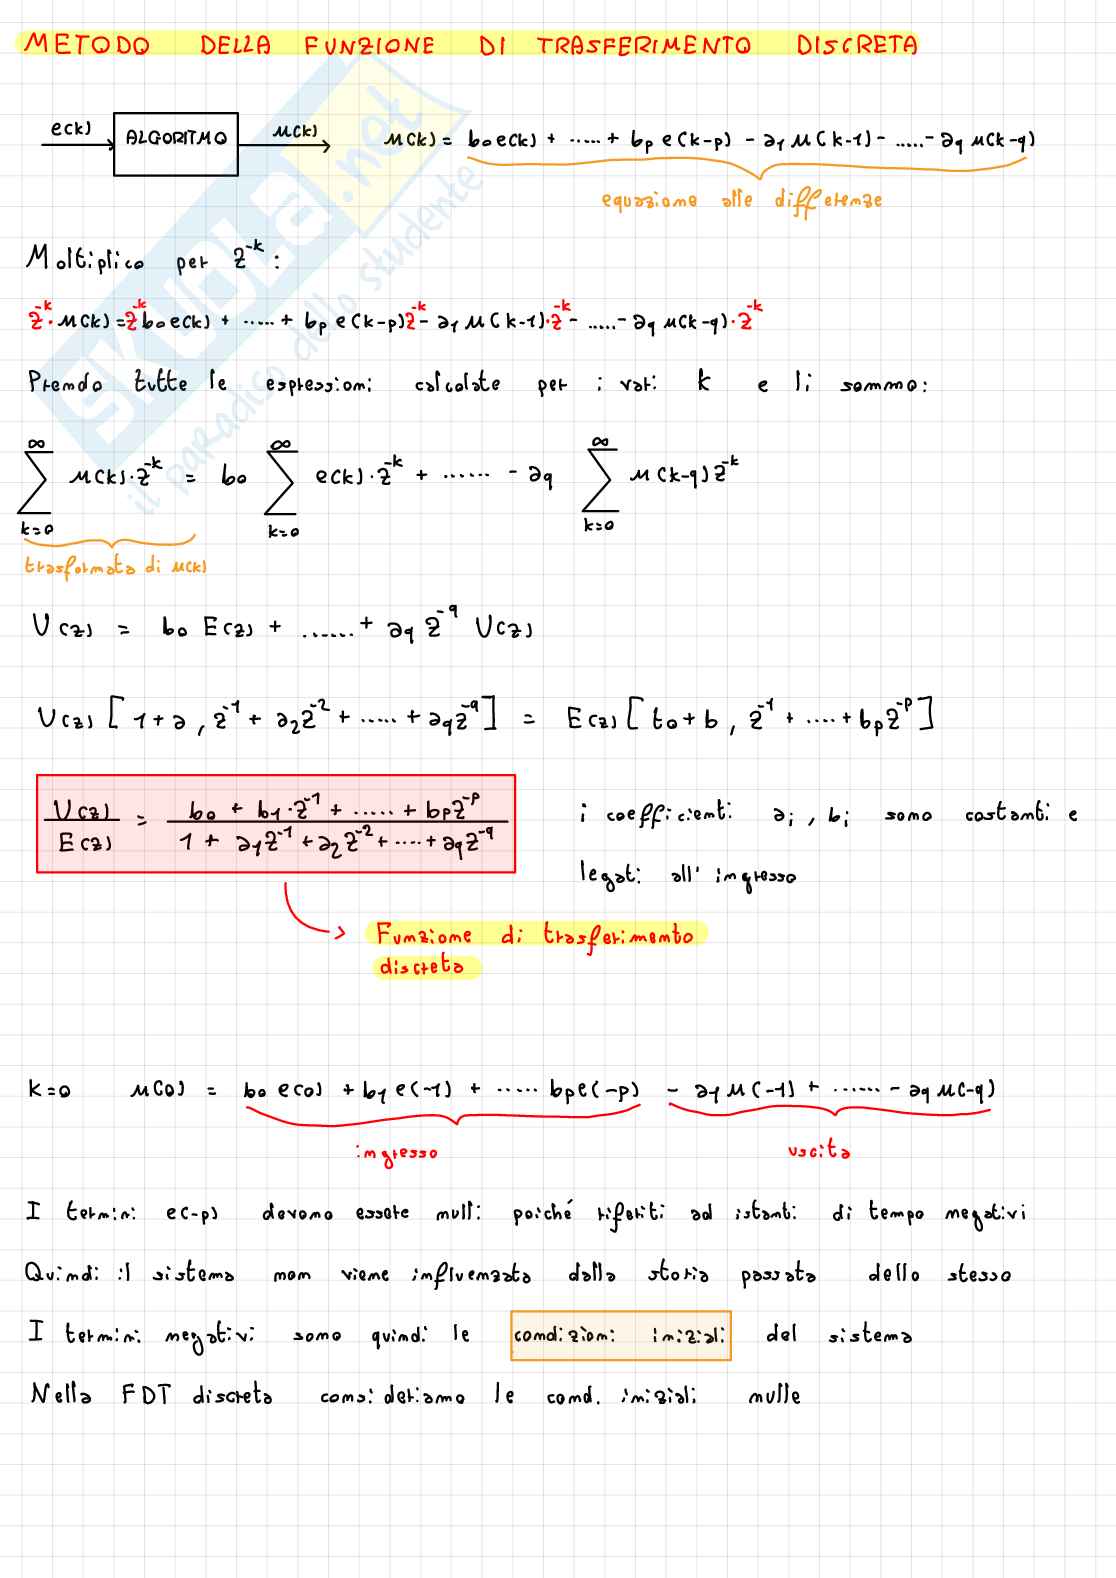 METODO DELLA FUNZIONE DI TRASFERIMENTO DISCRETA
e(k) ALGORITMO u(k) u(k) = b₀e(k) + ..... + bₚ e(k-p) - a₁ u(k-1) - ..... - a_q u(k-q)
equazione alle differenze
Moltiplico per z⁻ᵏ:
z⁻ᵏ · u(k) = z⁻ᵏ b₀ e(k) + ..... + bₚ e(k-p) z⁻ᵏ - a₁ u(k-1) · z⁻ᵏ - ..... - a_q u(k-q) · z⁻ᵏ
Prendo tutte le espressioni calcolate per i vari k e li sommo:
∑_{k=0}^{∞} u(k) · z⁻ᵏ = b₀ ∑_{k=0}^{∞} e(k) · z⁻ᵏ + ...... - a_q ∑_{k=0}^{∞} u(k-q) z⁻ᵏ
trasformata di u(k)
U(z) = b₀ E(z) + ...... + a_q z^{-q} U(z)
U(z) [ 1 + a, z⁻¹ + a₂z⁻² + ..... + a_q z^{-q} ] = E(z) [ t₀ + b, z⁻¹ + .... + bₚz⁻ᵖ ]
U(z)/E(z) = (b₀ + b₁ · z⁻¹ + ..... + bₚz⁻ᵖ) / (1 + a₁z⁻¹ + a₂z⁻² + .... + a_q z^{-q})
i coefficienti aᵢ , bᵢ sono costanti e
legati all' ingresso
Funzione di trasferimento
discreta
k=0 u(0) = b₀ e(0) + b₁ e(-1) + ..... bₚe(-p) - a₁ u(-1) + ...... - a_q u(-q)
ingresso uscita
I termini e(-p) devono essere nulli poiché riferiti ad istanti di tempo negativi
Quindi il sistema non viene influenzata dalla storia passata dello stesso
I termini negativi sono quindi le condizioni iniziali del sistema
Nella FDT discreta consideriamo le cond. iniziali nulle
SKUOLA.net
il paradiso dello studente